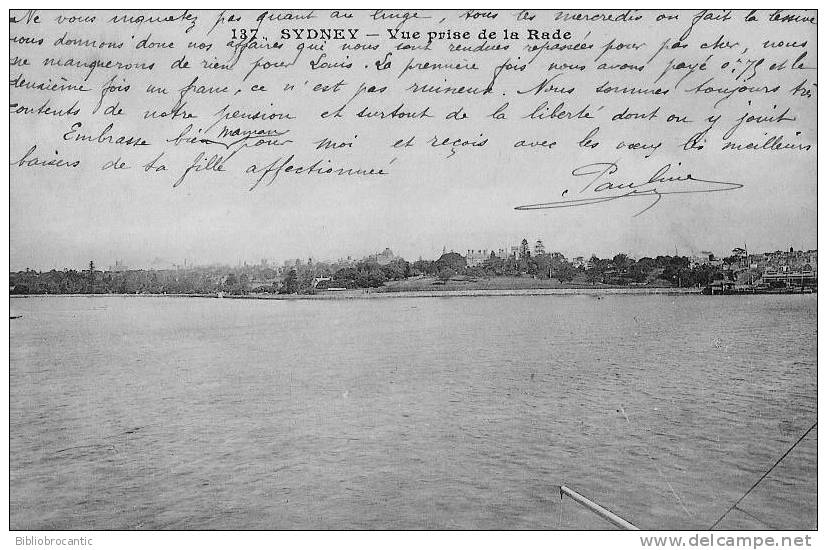 Ne vous inquiétez pas quant au linge, tous les mercredis on fait la lessive
137. SYDNEY – Vue prise de la Rade
nous donnons donc nos affaires qui nous sont rendues repassées pour pas cher, nous
ne manquerons de rien pour Louis. La première fois nous avons payé 0,75 et la
deuxième fois un franc, ce n'est pas ruineux. Nous sommes toujours très
contents de notre pension et surtout de la liberté dont on y jouit
Embrasse bien maman pour moi et reçois avec les vœux les meilleurs
baisers de ta fille affectionnée
Pauline
Bibliobrocantic
delcampe.net